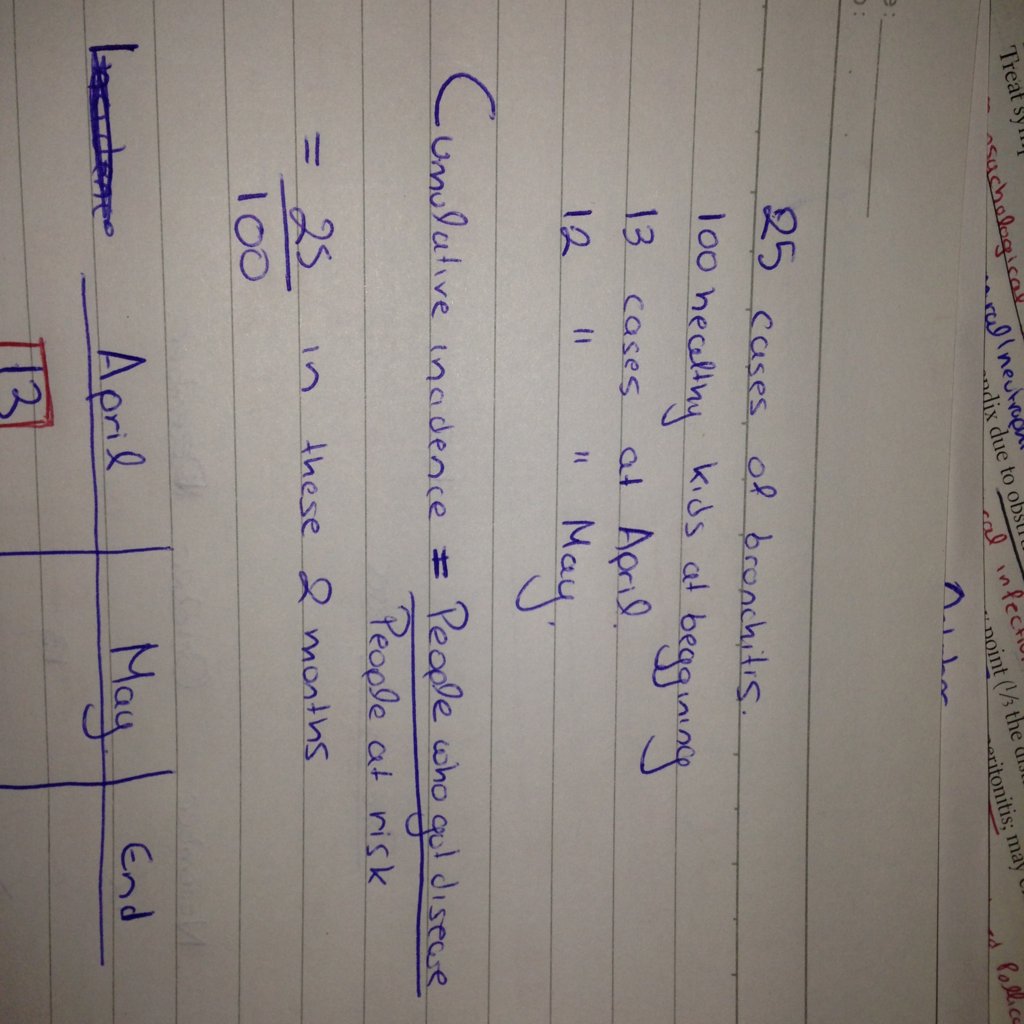 25 cases of bronchitis.
100 healthy kids at beggnince
13 cases at April.
12 " " May.
Cumulative incidence = People who got disease
People at risk
= 25 in these 2 months
100
April May End
13
Treat symp
psychological
neutroph
endix due to obstru
cal infection
point (1/3 the dis
peritonitis; may